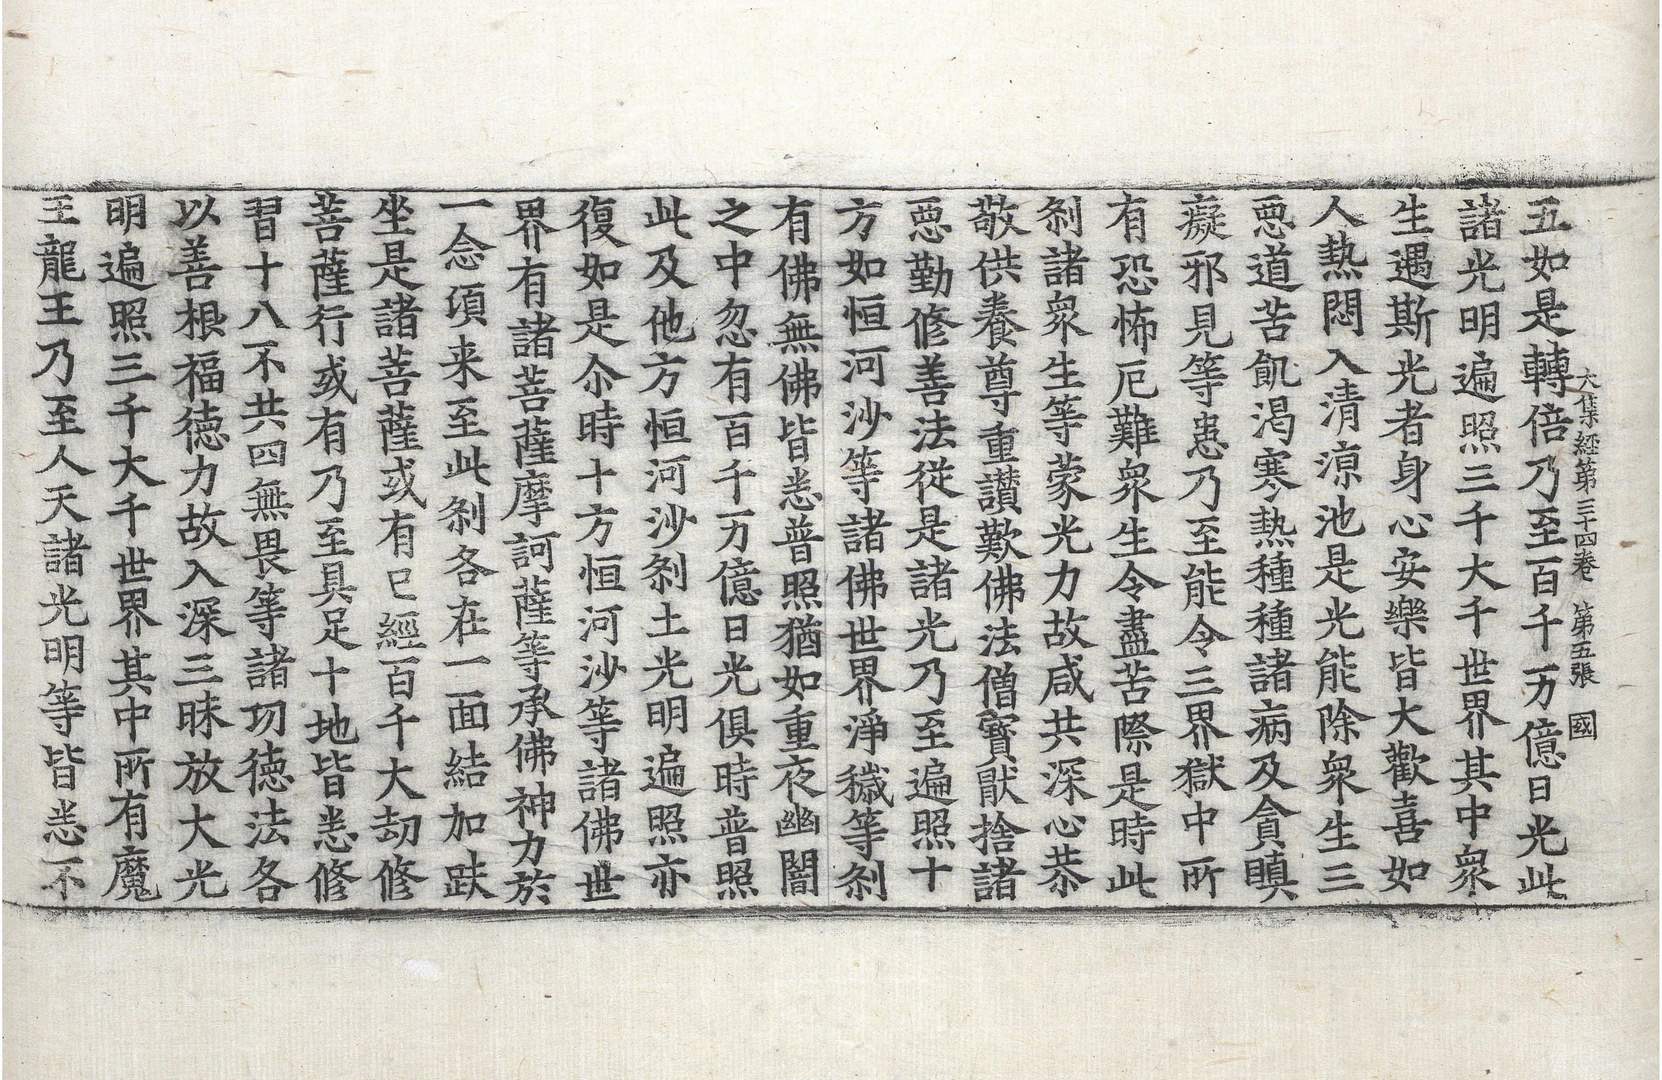 大集經第三十四卷 第五張 國
五如是轉倍乃至百千万億日光此
諸光明遍照三千大千世界其中衆
生遇斯光者身心安樂皆大歡喜如
人熱悶入清涼池是光能除衆生三
惡道苦飢渴寒熱種種諸病及貪瞋
癡邪見等患乃至能令三界獄中所
有恐怖厄難衆生令盡苦際是時此
刹諸衆生等蒙光力故咸共深心恭
敬供養尊重讃歎佛法僧寶猒捨諸
惡勤修善法從是諸光乃至遍照十
方如恒河沙等諸佛世界淨穢等刹
有佛無佛皆悉普照猶如重夜幽闇
之中忽有百千万億日光俱時普照
此及他方恒河沙刹土光明遍照亦
復如是尒時十方恒河沙等諸佛世
界有諸菩薩摩訶薩等承佛神力於
一念頃来至此刹各在一面結加趺
坐是諸菩薩或有已經百千大劫修
菩薩行或有乃至具足十地皆悉修
習十八不共四無畏等諸功德法各
以善根福德力故入深三昧放大光
明遍照三千大千世界其中所有魔
王龍王乃至人天諸光明等皆悉不